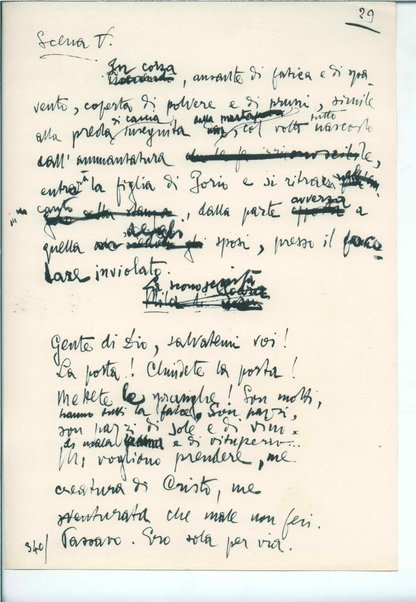 29
Scena V.
In corsa
, ansante di fatica e di spa-
vento, coperta di polvere e di pruni, simile
alla preda di caccia inseguita, col volto tutto nascosto
dall'ammantatura
entra la figlia di Jorio e si ritrae
, dalla parte avversa a
quella degli sposi, presso il foco-
lare inviolato.
La sconosciuta
Gente di Dio, salvatemi voi!
La porta! Chiudete la porta!
Mettete le spranghe! Son molti,
hanno tutti la falce. Son pazzi,
son pazzi di sole e di vino
di mala e di vituperio...
Mi vogliono prendere, me
creatura di Cristo, me
sventurata che male non feci.
340/ Passavo. Ero sola per via.